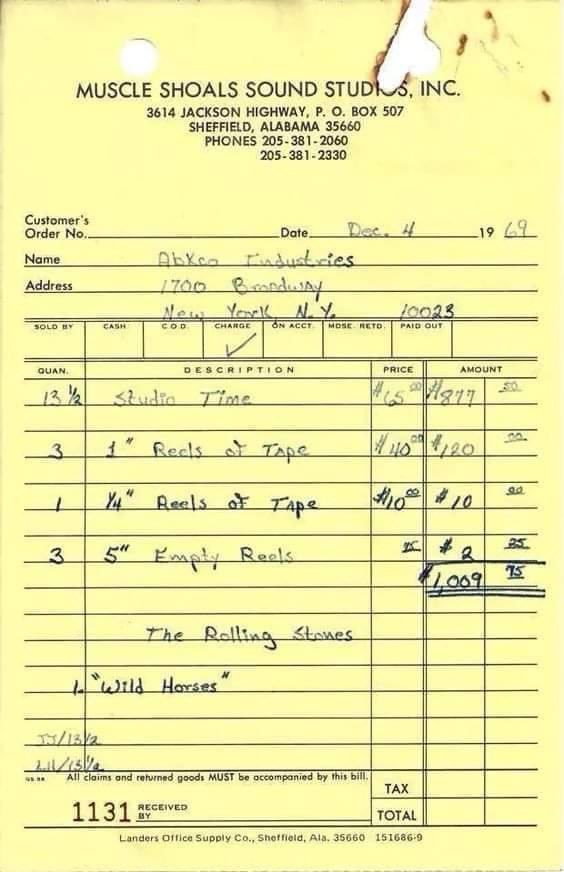 MUSCLE SHOALS SOUND STUDIOS, INC.
3614 JACKSON HIGHWAY, P. O. BOX 507
SHEFFIELD, ALABAMA 35660
PHONES 205-381-2060
205-381-2330
Customer's
Order No. Date Dec. 4 19 69
Name Abkco Industries
Address 1700 Broadway
New York, N.Y. 10023
SOLD BY CASH C.O.D. CHARGE ON ACCT. MDSE. RETD. PAID OUT
✓
QUAN. DESCRIPTION PRICE AMOUNT
13 1/2 Studio Time $65 00 $877 50
3 1" Reels of Tape $40 00 $120 00
1 1/4" Reels of Tape $10 00 $10 00
3 5" Empty Reels 75 $2 25
$1,009 75
The Rolling Stones
1. "Wild Horses"
JJ/13 1/2
/13 1/2
GS-98 All claims and returned goods MUST be accompanied by this bill.
TAX
1131 RECEIVED BY
TOTAL
Landers Office Supply Co., Sheffield, Ala. 35660 151686-9